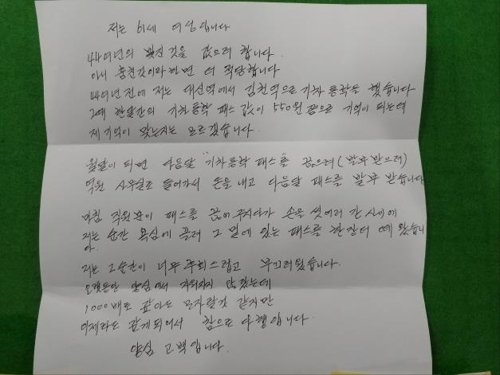 저는 61세 여성입니다
44여년의 빚진 것을 갚으려 합니다.
아니 훔친것이라 한번 더 적답합니다
44여년전에 저는 대신역에서 김천역으로 기차 통학을 했습니다
그때 한달간의 기차통학 패스 값이 550원 쯤으로 기억이 되는데
제 기억이 맞는지는 모르겠습니다.
월말이 되면 다음달 기차통학 패스를 끊으려(발부 받으려)
역원 사무실로 들어가서 돈을 내고 다음달 패스를 발부 받습니다
마침 직원분이 패스를 끊어 주시다가 손을 씻으러 간 사이에
저는 순간 욕심에 끌려 그 옆에 있는 패스를 한장 더 떼 왔습니다
저는 그순간이 너무 후회스럽고 부끄러웠습니다.
오랫동안 양심에서 지워지지 않았는데
1000배로 갚아도 모자랄것 같지만
이제라도 갚게 되어서 참으로 다행입니다.
양심 고백입니다.